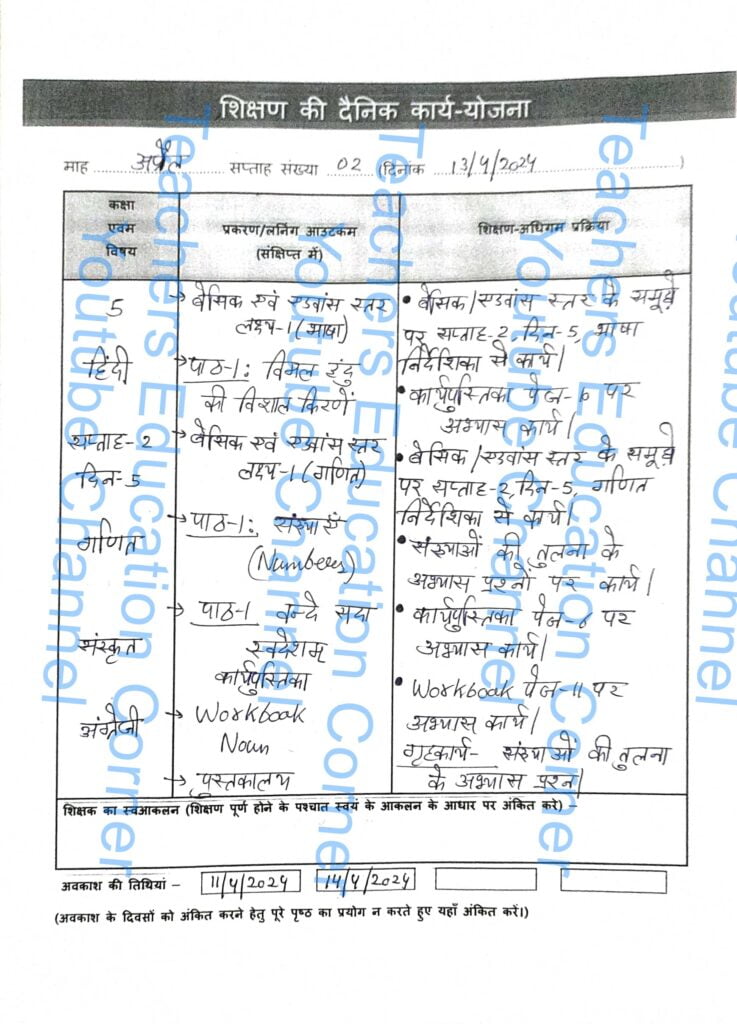 शिक्षण की दैनिक कार्य-योजना
माह अप्रैल सप्ताह संख्या 02 (दिनांक 13/4/2024)
कक्षा एवम विषय
प्रकरण/लर्निंग आउटकम (संक्षिप्त में)
शिक्षण-अधिगम प्रक्रिया
5
हिंदी
सप्ताह-2
दिन-5
गणित
संस्कृत
अंग्रेजी
→ बेसिक एवं एडवांस स्तर
लक्ष्य-1 (भाषा)
→ पाठ-1: विमल इंदु
की विशाल किरणें
→ बेसिक एवं एडवांस स्तर
लक्ष्य-1 (गणित)
→ पाठ-1: संख्याएँ
(Numbers)
→ पाठ-1 वन्दे सदा
स्वदेशम्
कार्यपुस्तिका
→ Workbook
Noun
→ पुस्तकालय
• बेसिक/एडवांस स्तर के समूहों
पर सप्ताह-2, दिन-5, भाषा
निर्देशिका से कार्य।
• कार्यपुस्तिका पेज-6 पर
अभ्यास कार्य।
• बेसिक/एडवांस स्तर के समूहों
पर सप्ताह-2, दिन-5, गणित
निर्देशिका से कार्य।
• संख्याओं की तुलना के
अभ्यास प्रश्नों पर कार्य।
• कार्यपुस्तिका पेज-6 पर
अभ्यास कार्य।
• Workbook पेज-11 पर
अभ्यास कार्य।
गृहकार्य- संख्याओं की तुलना
के अभ्यास प्रश्न।
शिक्षक का स्वआकलन (शिक्षण पूर्ण होने के पश्चात स्वयं के आकलन के आधार पर अंकित करे) –
अवकाश की तिथियां – 11/4/2024 14/4/2024
(अवकाश के दिवसों को अंकित करने हेतु पूरे पृष्ठ का प्रयोग न करते हुए यहाँ अंकित करें।)
Teachers Education Corner
Youtube Channel
Teachers Education Corner
Youtube Channel
Teachers Education Corner
Youtube Channel